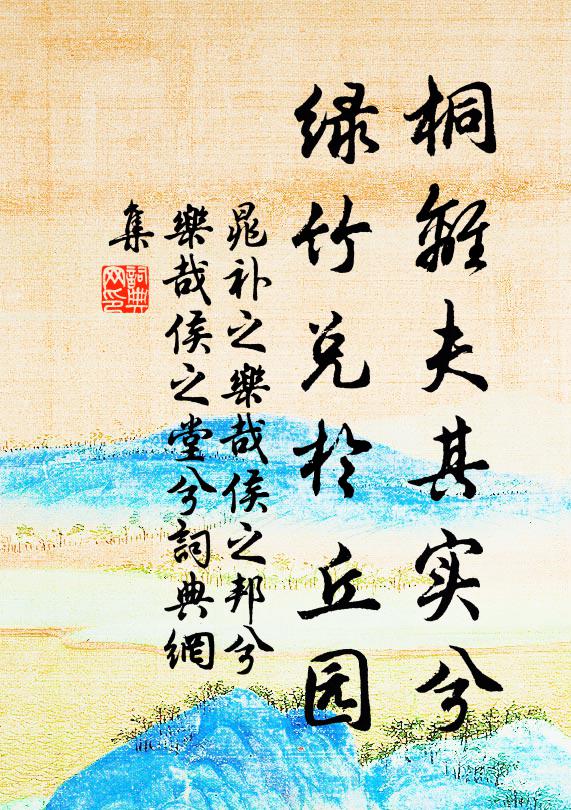 桐离夫其实兮
绿竹兑於丘园
晁补之樂哉侯之邦兮
樂哉侯之堂兮詞典網
集
詞典网印